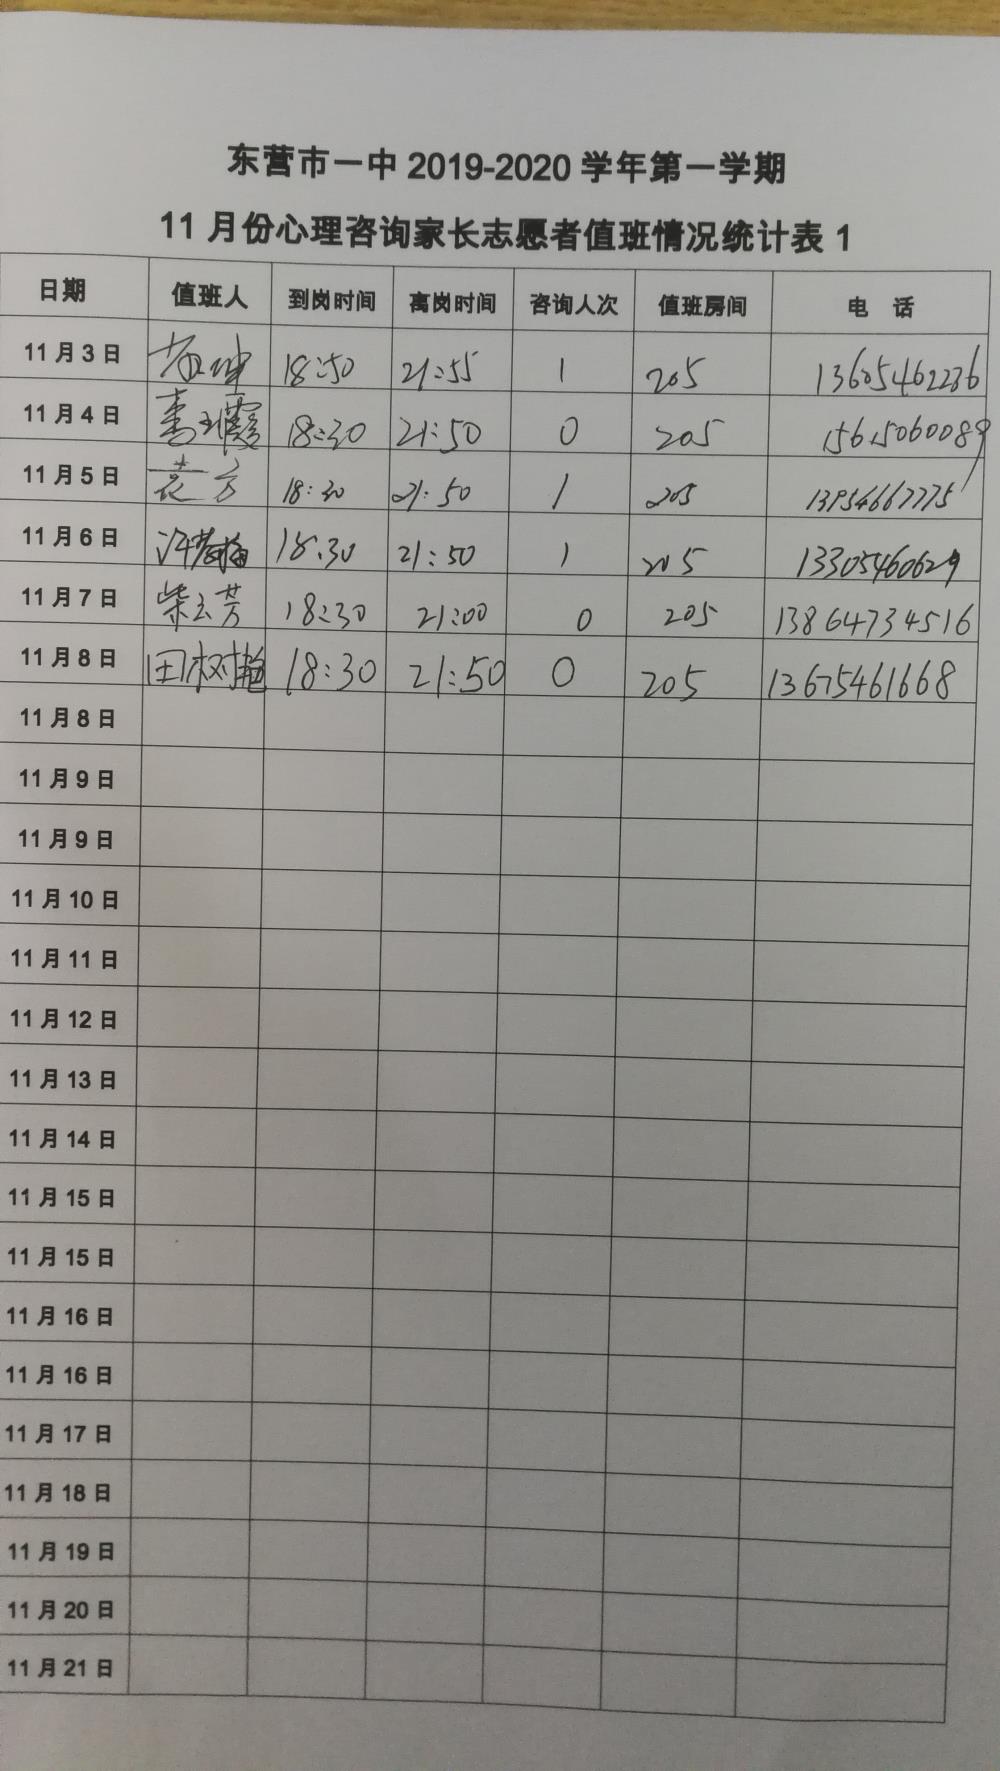 东营市一中 2019-2020 学年第一学期
11 月份心理咨询家长志愿者值班情况统计表 1
日期 值班人 到岗时间 离岗时间 咨询人次 值班房间 电 话
11 月 3 日 18:50 21:55 1 205
11 月 4 日 18:30 21:50 0 205 15615060089
11 月 5 日 18:30 21:50 1 205 13954667775
11 月 6 日 18:30 21:50 1 205 13305460629
11 月 7 日 柴云芳 18:30 21:00 0 205 13864734516
11 月 8 日 田树艳 18:30 21:50 0 205 13675461668
11 月 8 日
11 月 9 日
11 月 9 日
11 月 10 日
11 月 11 日
11 月 12 日
11 月 13 日
11 月 14 日
11 月 15 日
11 月 15 日
11 月 16 日
11 月 16 日
11 月 17 日
11 月 18 日
11 月 19 日
11 月 20 日
11 月 21 日